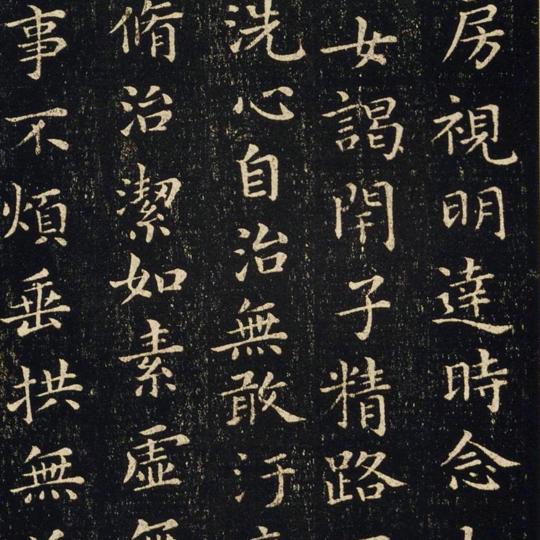 房視明達時念
女謁閇子精路
洗心自治無敢汙
脩治潔如素虛
事不煩垂拱無